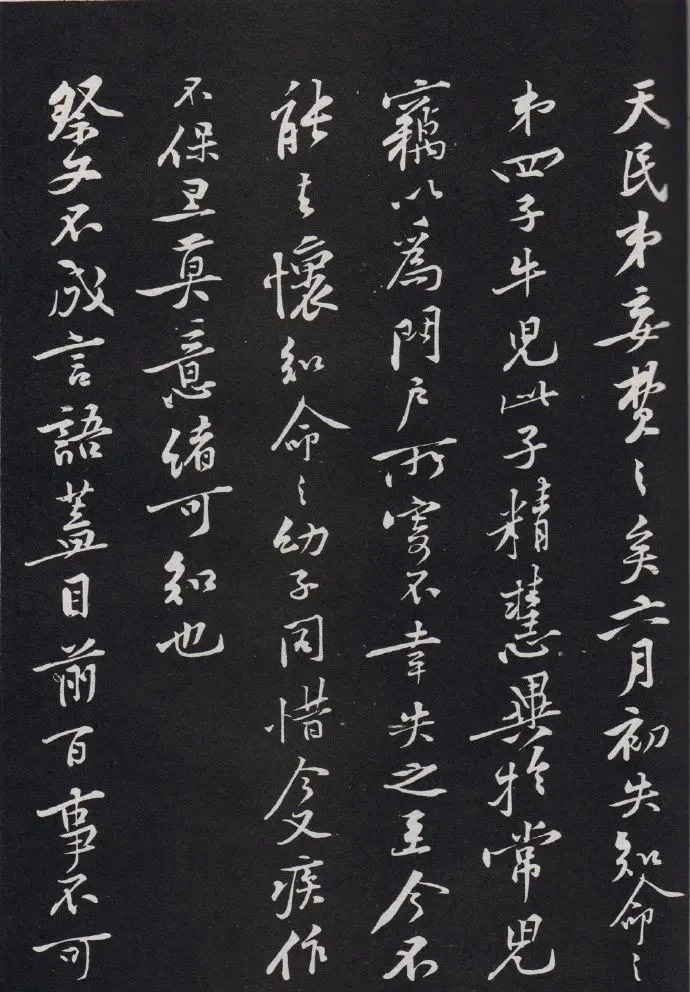 天民弟妄費〻矣六月初失知命〻
弟四子牛兒此子精慧異於常兒
竊以為門戶所寄不幸失之至今不
能去懷知命〻幼子同惜今又疾作
不保旦莫意緒可知也
祭文不成言語蓋目前百事不可